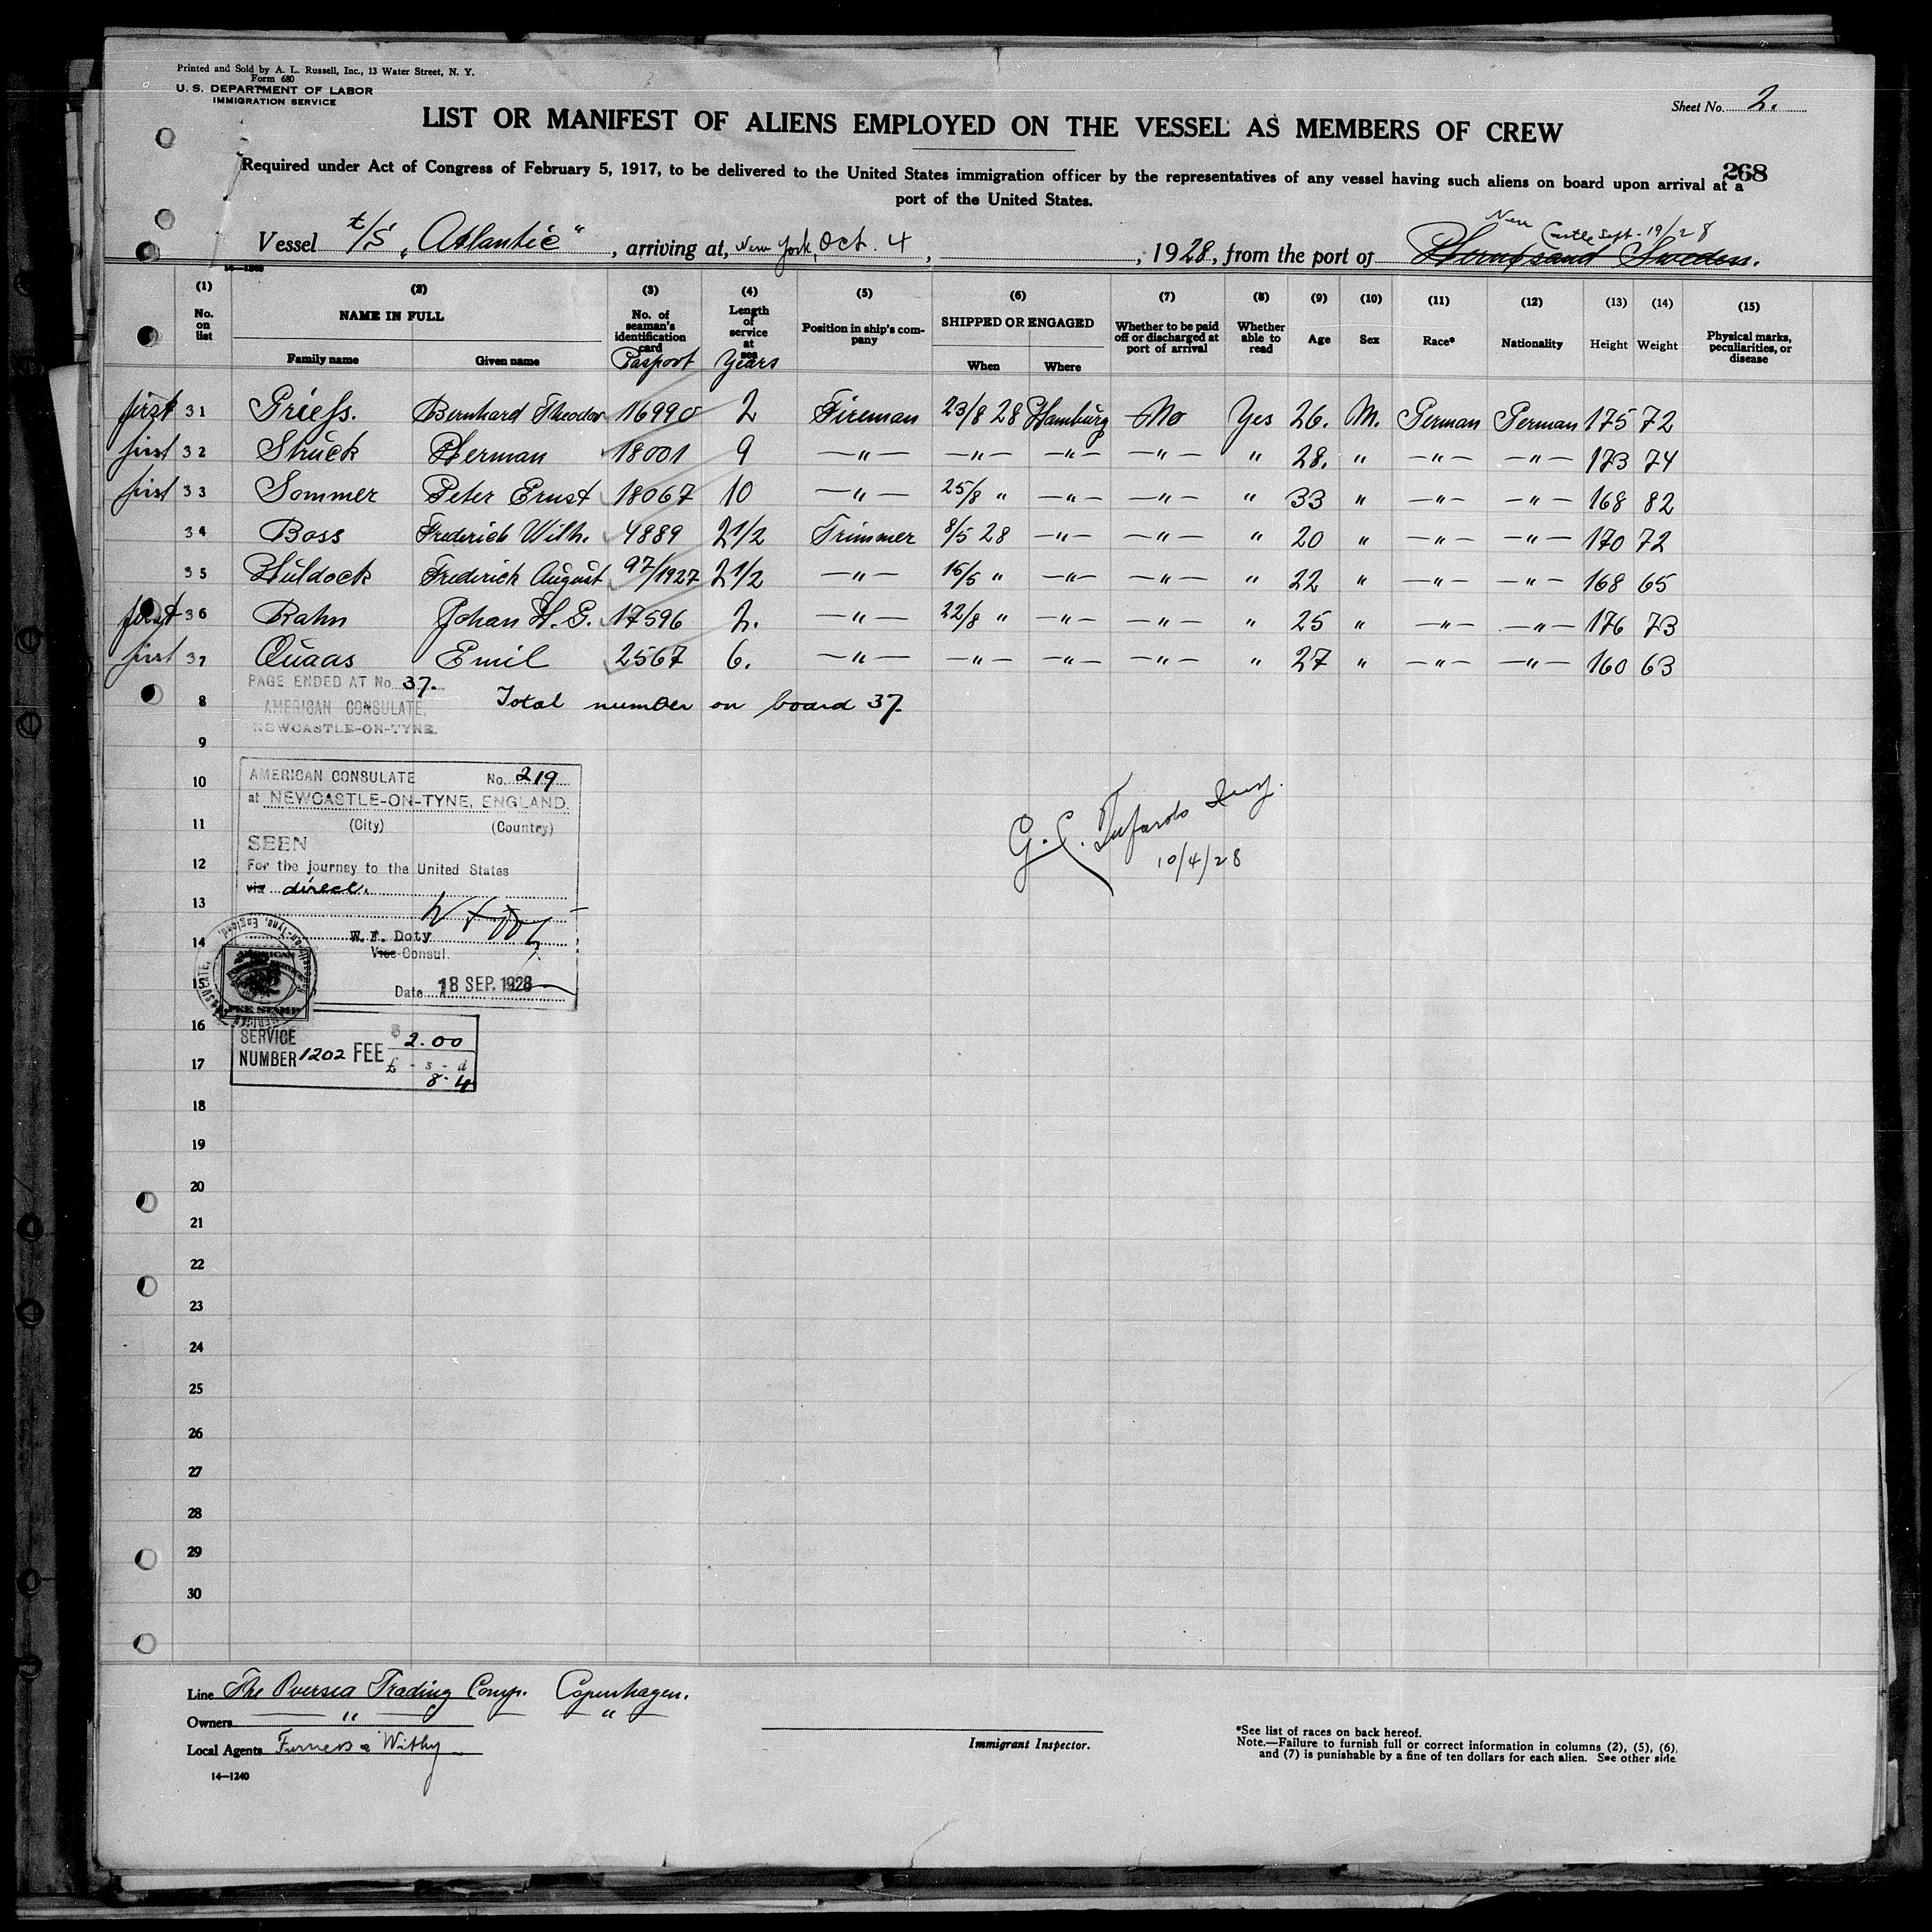 Printed and Sold by A. L. Russell, Inc., 13 Water Street, N. Y.
Form 680
U. S. DEPARTMENT OF LABOR
IMMIGRATION SERVICE
Sheet No. 2.
LIST OR MANIFEST OF ALIENS EMPLOYED ON THE VESSEL AS MEMBERS OF CREW
268
Required under Act of Congress of February 5, 1917, to be delivered to the United States immigration officer by the representatives of any vessel having such aliens on board upon arrival at a
port of the United States.
New Castle Sept. 19/28
Vessel t/s „Atlantic“, arriving at, New York, Oct. 4, 1928, from the port of Sweden.
(1) (2) (3) (4) (5) (6) (7) (8) (9) (10) (11) (12) (13) (14) (15)
No. on list NAME IN FULL Family name Given name No. of seaman's identification card Pasport Length of service at sea Years Position in ship's company SHIPPED OR ENGAGED When Where Whether to be paid off or discharged at port of arrival Whether able to read Age Sex Race* Nationality Height Weight Physical marks, peculiarities, or disease
first 31 Griess. Bernhard Theodor 16990 2 Fireman 23/8 28 Hamburg No Yes 26. M. German German 175 72
first 32 Struck Herman 18001 9 —"— —"— —"— —"— " 28. " —"— —"— 173 74
first 33 Sommer Peter Ernst 18067 10 —"— 25/8 " —"— —"— " 33 " —"— —"— 168 82
34 Boss Frederich Wilh. 4889 2 1/2 Trimmer 8/5 28 —"— —"— " 20 " —"— —"— 170 72
35 Huldock Frederich August 97/1927 2 1/2 —"— 15/5 " —"— —"— " 22 " —"— —"— 168 65
first 36 Rahn Johan H. G. 17596 2. —"— 22/8 " —"— —"— " 25 " —"— —"— 176 73
first 37 Quaas Emil 2567 6. —"— —"— —"— —"— " 27 " —"— —"— 160 63
PAGE ENDED AT No. 37.
8 AMERICAN CONSULATE, Total number on board 37.
NEWCASTLE-ON-TYNE.
9
10 AMERICAN CONSULATE No. 219
at NEWCASTLE-ON-TYNE, ENGLAND.
11 (City) (Country)
SEEN
12 For the journey to the United States
via direct.
13
14 W. F. Doty
Vice Consul.
15 Date 18 SEP. 1928
FEE STAMP
16
SERVICE NUMBER 1202 FEE $ 2.00
17 £ - s - d
8 - 4
G. C.
10/4/28
18
19
20
21
22
23
24
25
26
27
28
29
30
Line The Oversea Trading Comp. Copenhagen.
Owners —"— "
Local Agents Furness & Withy
14—1240
Immigrant Inspector.
*See list of races on back hereof.
Note.—Failure to furnish full or correct information in columns (2), (5), (6),
and (7) is punishable by a fine of ten dollars for each alien. See other side.